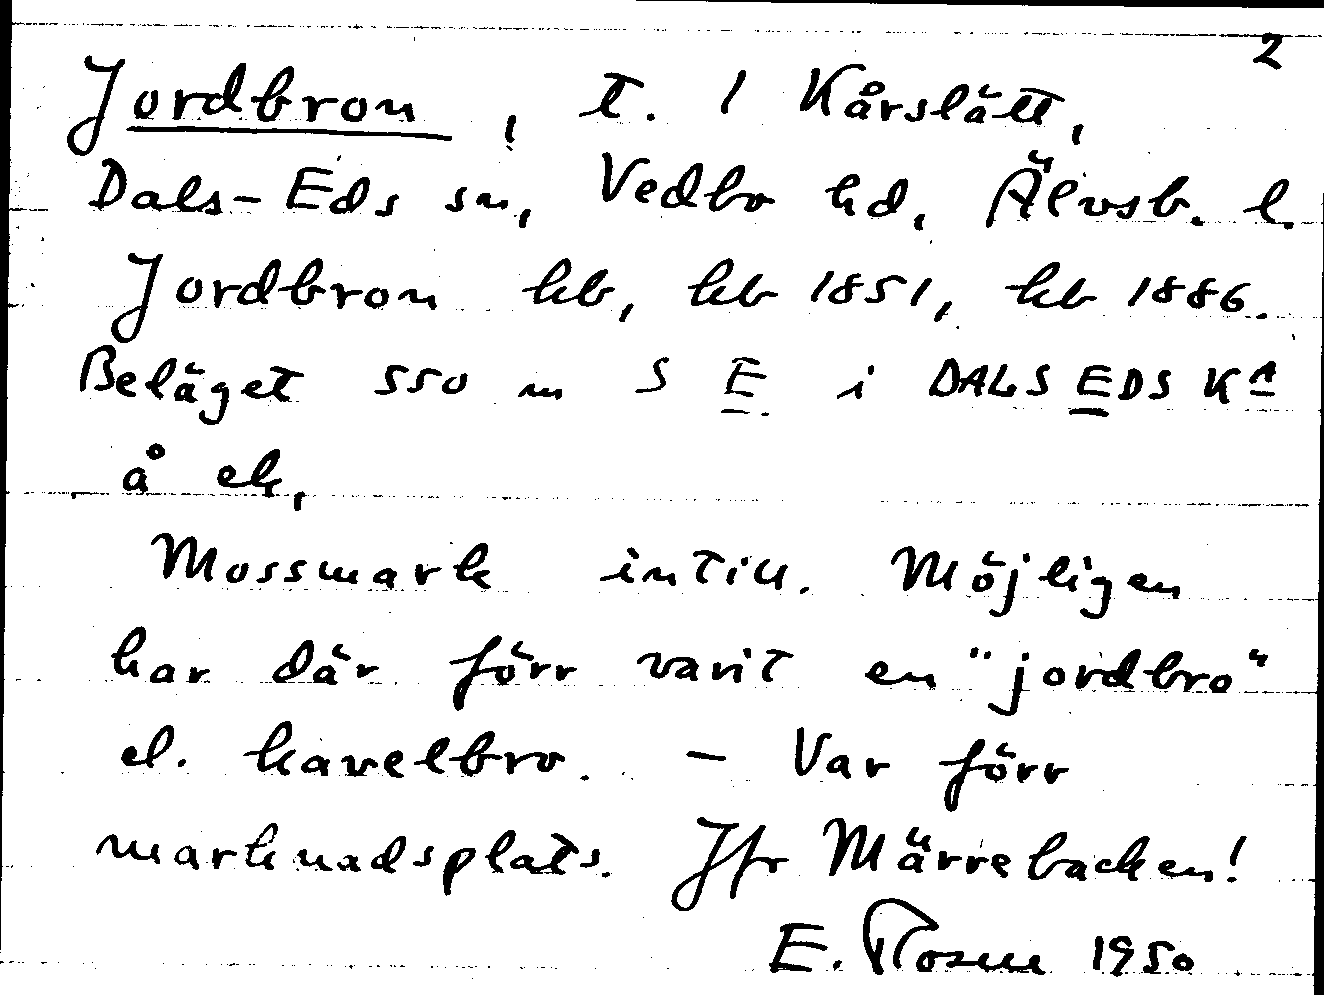 2
Jordbron, t. 1 Kårslätt,
Dals-Eds sn, Vedbo hd, Älvsb. l.
Jordbron hb, hb 1851, hb 1886.
Beläget 550 m S E i DALS EDS KA
å ek,
Mossmark intill. Möjligen
har där förr varit en "jordbro"
el. kavelbro. - Var förr
marknadsplats. Jfr Märrebacken!
E. 1950